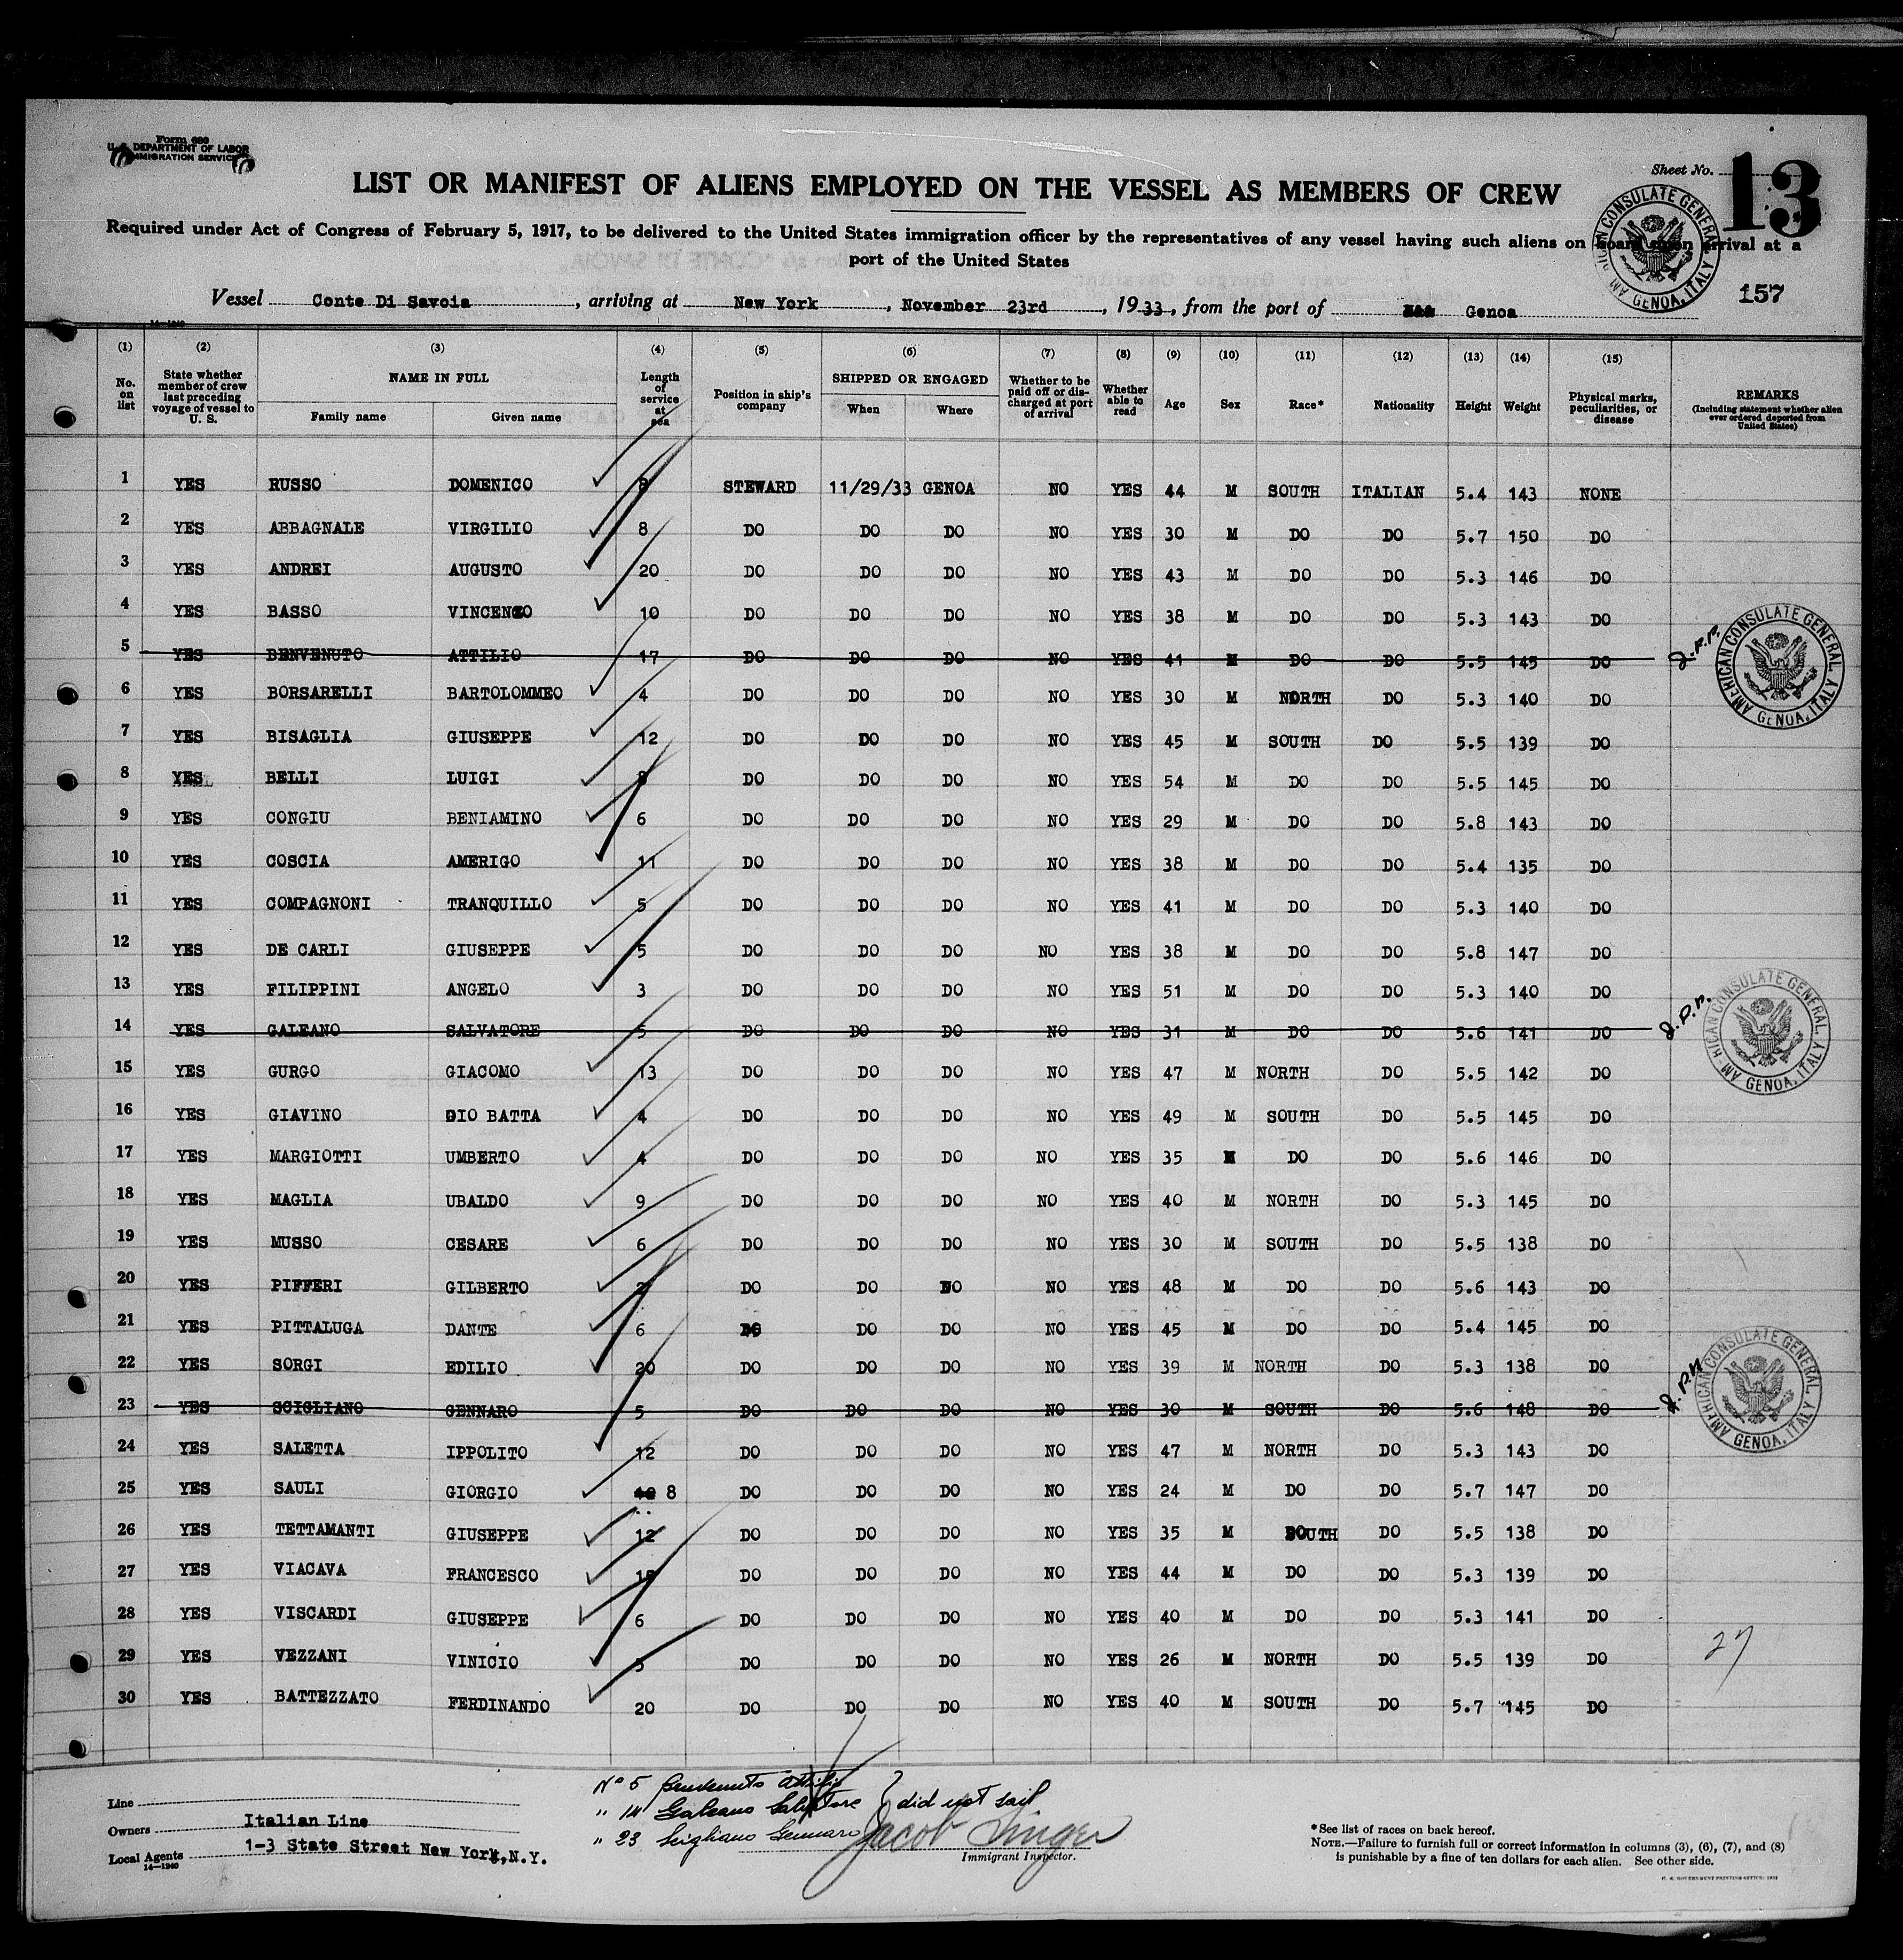 Form 680
U. S. DEPARTMENT OF LABOR
IMMIGRATION SERVICE
Sheet No. 13
LIST OR MANIFEST OF ALIENS EMPLOYED ON THE VESSEL AS MEMBERS OF CREW
Required under Act of Congress of February 5, 1917, to be delivered to the United States immigration officer by the representatives of any vessel having such aliens on board upon arrival at a
port of the United States
AMERICAN CONSULATE GENERAL, GENOA, ITALY
157
Vessel Conte Di Savoia, arriving at New York, November 23rd, 1933, from the port of Genoa
14-1240
(1) (2) (3) (4) (5) (6) (7) (8) (9) (10) (11) (12) (13) (14) (15)
No. on list State whether member of crew last preceding voyage of vessel to U. S. NAME IN FULL Family name Given name Length of service at sea Position in ship's company SHIPPED OR ENGAGED When Where Whether to be paid off or discharged at port of arrival Whether able to read Age Sex Race* Nationality Height Weight Physical marks, peculiarities, or disease REMARKS (Including statement whether alien ever ordered deported from United States)
1 YES RUSSO DOMENICO STEWARD 11/29/33 GENOA NO YES 44 M SOUTH ITALIAN 5.4 143 NONE
2 YES ABBAGNALE VIRGILIO 8 DO DO DO NO YES 30 M DO DO 5.7 150 DO
3 YES ANDREI AUGUSTO 20 DO DO DO NO YES 43 M DO DO 5.3 146 DO
4 YES BASSO VINCENZO 10 DO DO DO NO YES 38 M DO DO 5.3 143 DO
5 YES BENVENUTO ATTILIO 17 DO DO DO NO YES 41 M DO DO 5.5 145 DO
AMERICAN CONSULATE GENERAL, GENOA, ITALY
6 YES BORSARELLI BARTOLOMMEO 4 DO DO DO NO YES 30 M NORTH DO 5.3 140 DO
7 YES BISAGLIA GIUSEPPE 12 DO DO DO NO YES 45 M SOUTH DO 5.5 139 DO
8 YES BELLI LUIGI DO DO DO NO YES 54 M DO DO 5.5 145 DO
9 YES CONGIU BENIAMINO 6 DO DO DO NO YES 29 M DO DO 5.8 143 DO
10 YES COSCIA AMERIGO 11 DO DO DO NO YES 38 M DO DO 5.4 135 DO
11 YES COMPAGNONI TRANQUILLO 5 DO DO DO NO YES 41 M DO DO 5.3 140 DO
12 YES DE CARLI GIUSEPPE 5 DO DO DO NO YES 38 M DO DO 5.8 147 DO
13 YES FILIPPINI ANGELO 3 DO DO DO NO YES 51 M DO DO 5.3 140 DO
14 YES GALEANO SALVATORE 5 DO DO DO NO YES 31 M DO DO 5.6 141 DO J.P.M.
AMERICAN CONSULATE GENERAL, GENOA, ITALY
15 YES GURGO GIACOMO 13 DO DO DO NO YES 47 M NORTH DO 5.5 142 DO
16 YES GIAVINO GIO BATTA 4 DO DO DO NO YES 49 M SOUTH DO 5.5 145 DO
17 YES MARGIOTTI UMBERTO 4 DO DO DO NO YES 35 M DO DO 5.6 146 DO
18 YES MAGLIA UBALDO 9 DO DO DO NO YES 40 M NORTH DO 5.3 145 DO
19 YES MUSSO CESARE 6 DO DO DO NO YES 30 M SOUTH DO 5.5 138 DO
20 YES PIFFERI GILBERTO 2 DO DO DO NO YES 48 M DO DO 5.6 143 DO
21 YES PITTALUGA DANTE 6 DO DO DO NO YES 45 M DO DO 5.4 145 DO
22 YES SORGI EDILIO 20 DO DO DO NO YES 39 M NORTH DO 5.3 138 DO
23 YES SCIGLIANO GENNARO 5 DO DO DO NO YES 30 M SOUTH DO 5.6 148 DO
AMERICAN CONSULATE GENERAL, GENOA, ITALY
24 YES SALETTA IPPOLITO 12 DO DO DO NO YES 47 M NORTH DO 5.3 143 DO
25 YES SAULI GIORGIO 8 DO DO DO NO YES 24 M DO DO 5.7 147 DO
26 YES TETTAMANTI GIUSEPPE 12 DO DO DO NO YES 35 M SOUTH DO 5.5 138 DO
27 YES VIACAVA FRANCESCO DO DO DO NO YES 44 M DO DO 5.3 139 DO
28 YES VISCARDI GIUSEPPE 6 DO DO DO NO YES 40 M DO DO 5.3 141 DO
29 YES VEZZANI VINICIO DO DO DO NO YES 26 M NORTH DO 5.5 139 DO 27
30 YES BATTEZZATO FERDINANDO 20 DO DO DO NO YES 40 M SOUTH DO 5.7 145 DO
No 5 Benvenuto Attilio
" 14 Galeano Salvatore } did not sail
" 23 Scigliano Gennaro
Jacob Singer
Immigrant Inspector.
Line
Owners Italian Line
Local Agents 1-3 State Street New York, N.Y.
14-1240
*See list of races on back hereof.
NOTE.—Failure to furnish full or correct information in columns (3), (6), (7), and (8)
is punishable by a fine of ten dollars for each alien. See other side.
U. S. GOVERNMENT PRINTING OFFICE: 1932